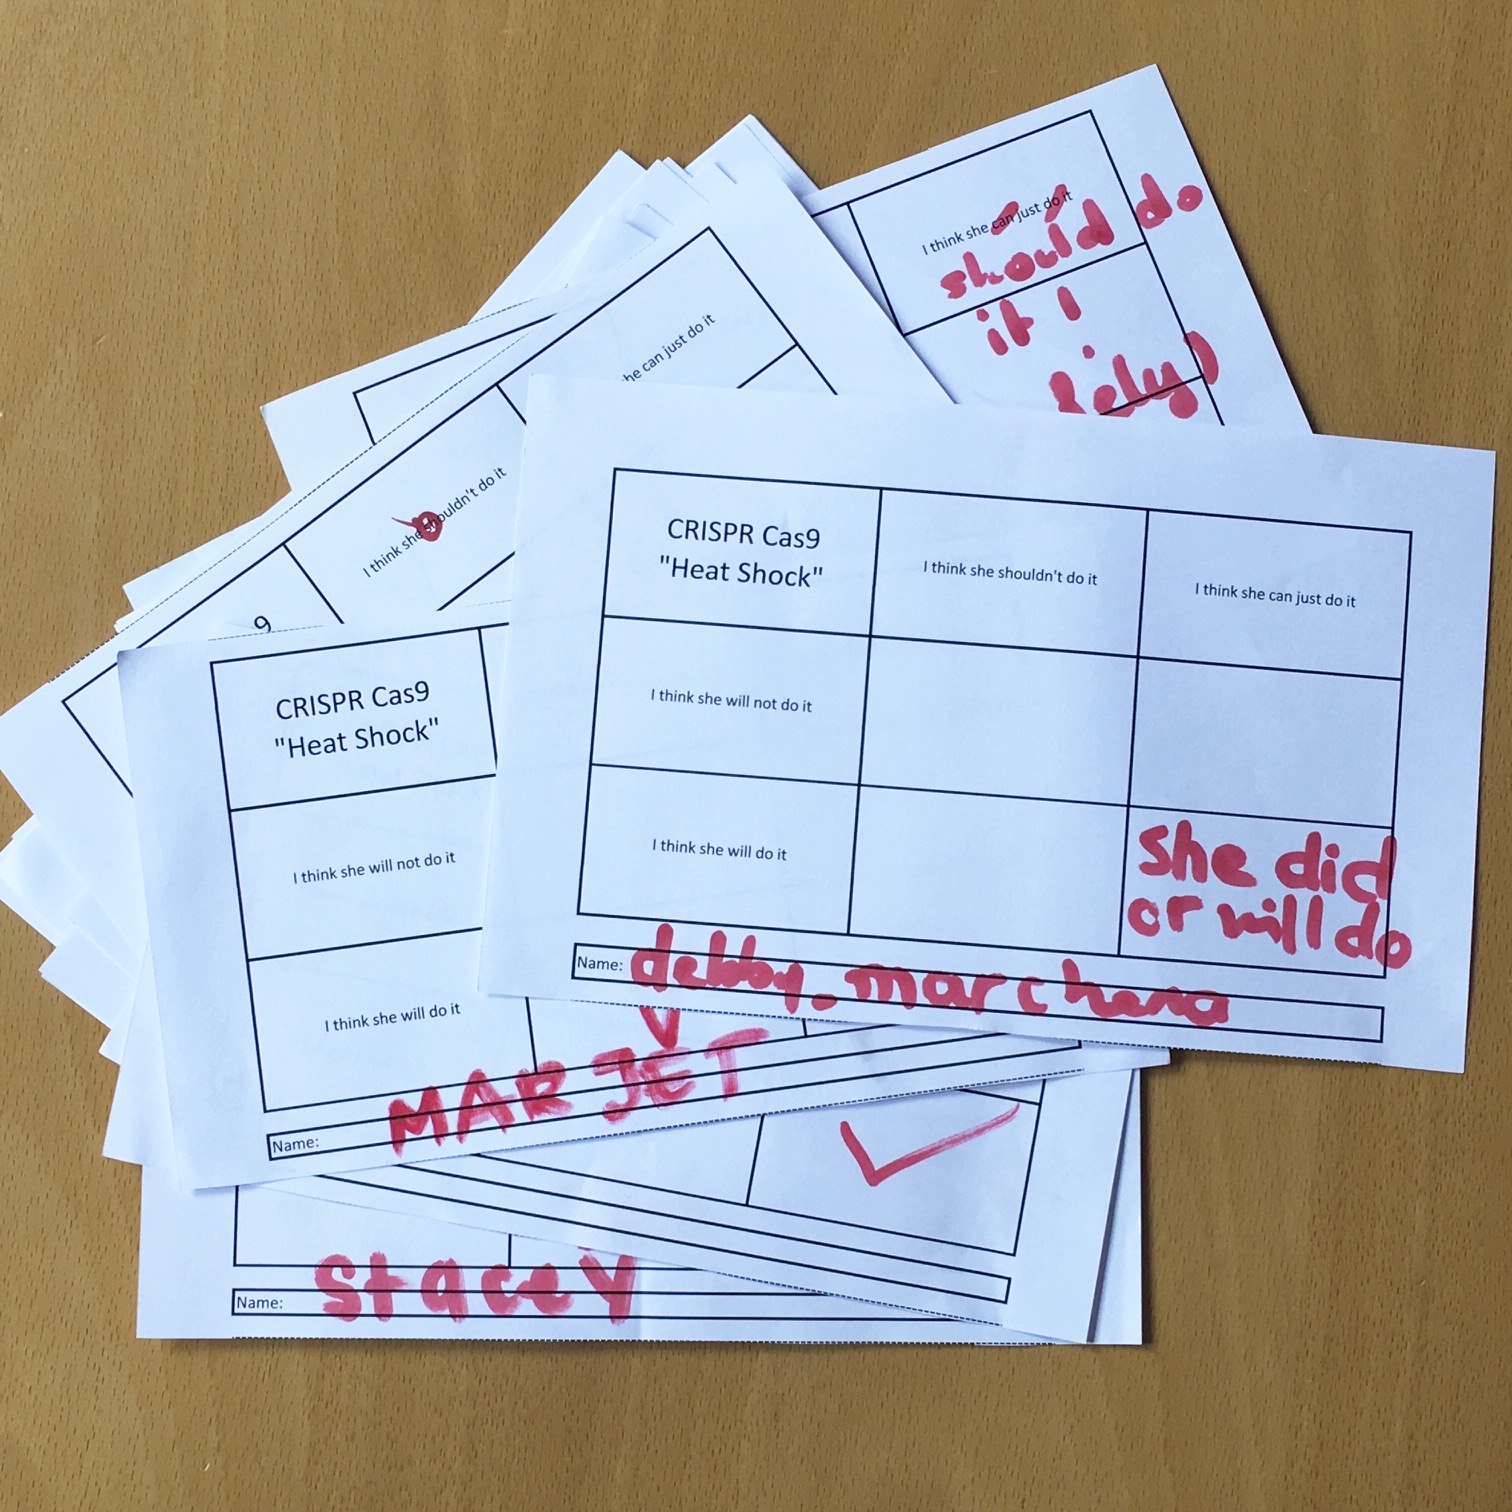 I think she can just do it
should do
it !
he can just do it
I think she shouldn't do it
9
CRISPR Cas9
"Heat Shock"
I think she shouldn't do it
I think she can just do it
I think she will not do it
I think she will do it
she did
or will do
Name: debby-marchena
CRISPR Cas9
"Heat Shock"
I think she will not do it
I think she will do it
Name: MARJET
Name: Stacey